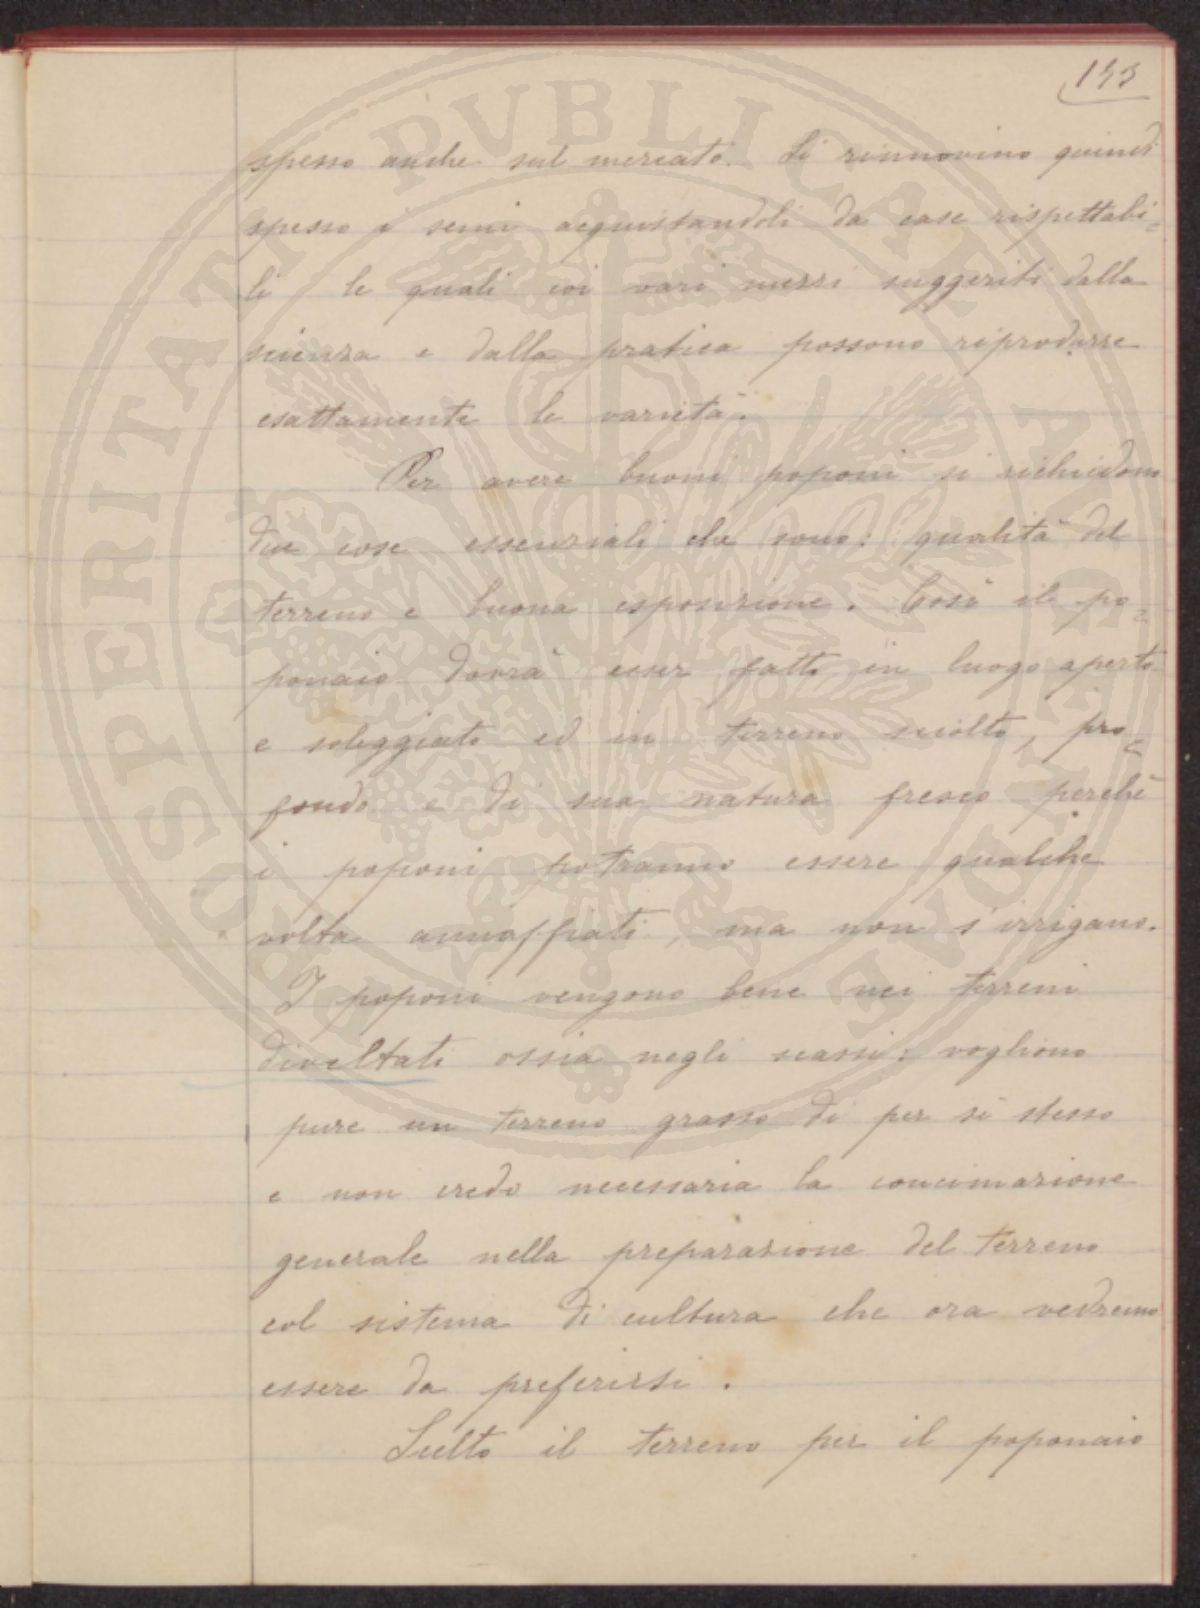 153
spesso anche sul mercato. Si rinnovino quindi
spesso i semi acquistandoli da case rispettabi=
li le quali coi vari mezzi suggeriti dalla
scienza e dalla pratica possono riprodurre
esattamente le varietà.
Per avere buoni poponi si richiedono
due cose essenziali che sono: qualità del
terreno e buona esposizione. Così il po=
ponaio dovrà esser fatto in luogo aperto
e soleggiato ed in terreno sciolto, pro=
fondo e di sua natura fresco perchè
i poponi potranno essere qualche
volta annaffiati, ma non s'irrigano.
I poponi vengono bene nei terreni
diveltati ossia negli scassi: vogliono
pure un terreno grasso di per sè stesso
e non credo necessaria la concimazione
generale nella preparazione del terreno
col sistema di cultura che ora vedremo
essere da preferirsi.
Scelto il terreno per il poponaio
PROSPERITATI PVBLICAE AVGENDAE